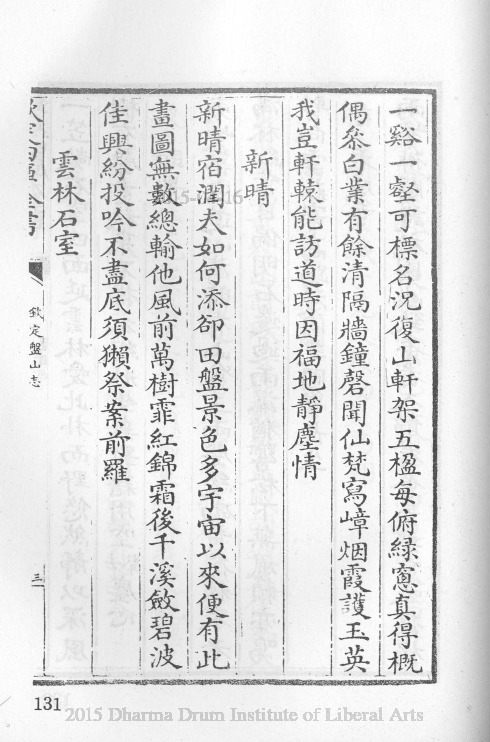 一谿一壑可標名況復山軒架五楹每俯緑窓真得概
偶叅白業有餘清隔牆鐘磬聞仙梵寫嶂烟霞護玉英
我豈軒轅能訪道時因福地靜塵情
新晴
新晴宿潤夫如何添卻田盤景色多宇宙以來便有此
畫圖無數總輸他風前萬樹霏紅錦霜後千溪斂碧波
佳興紛投吟不盡底須獺祭案前羅
雲林石室
欽定四庫全書
欽定盤山志
三
131
2015 Dharma Drum Institute of Liberal Arts